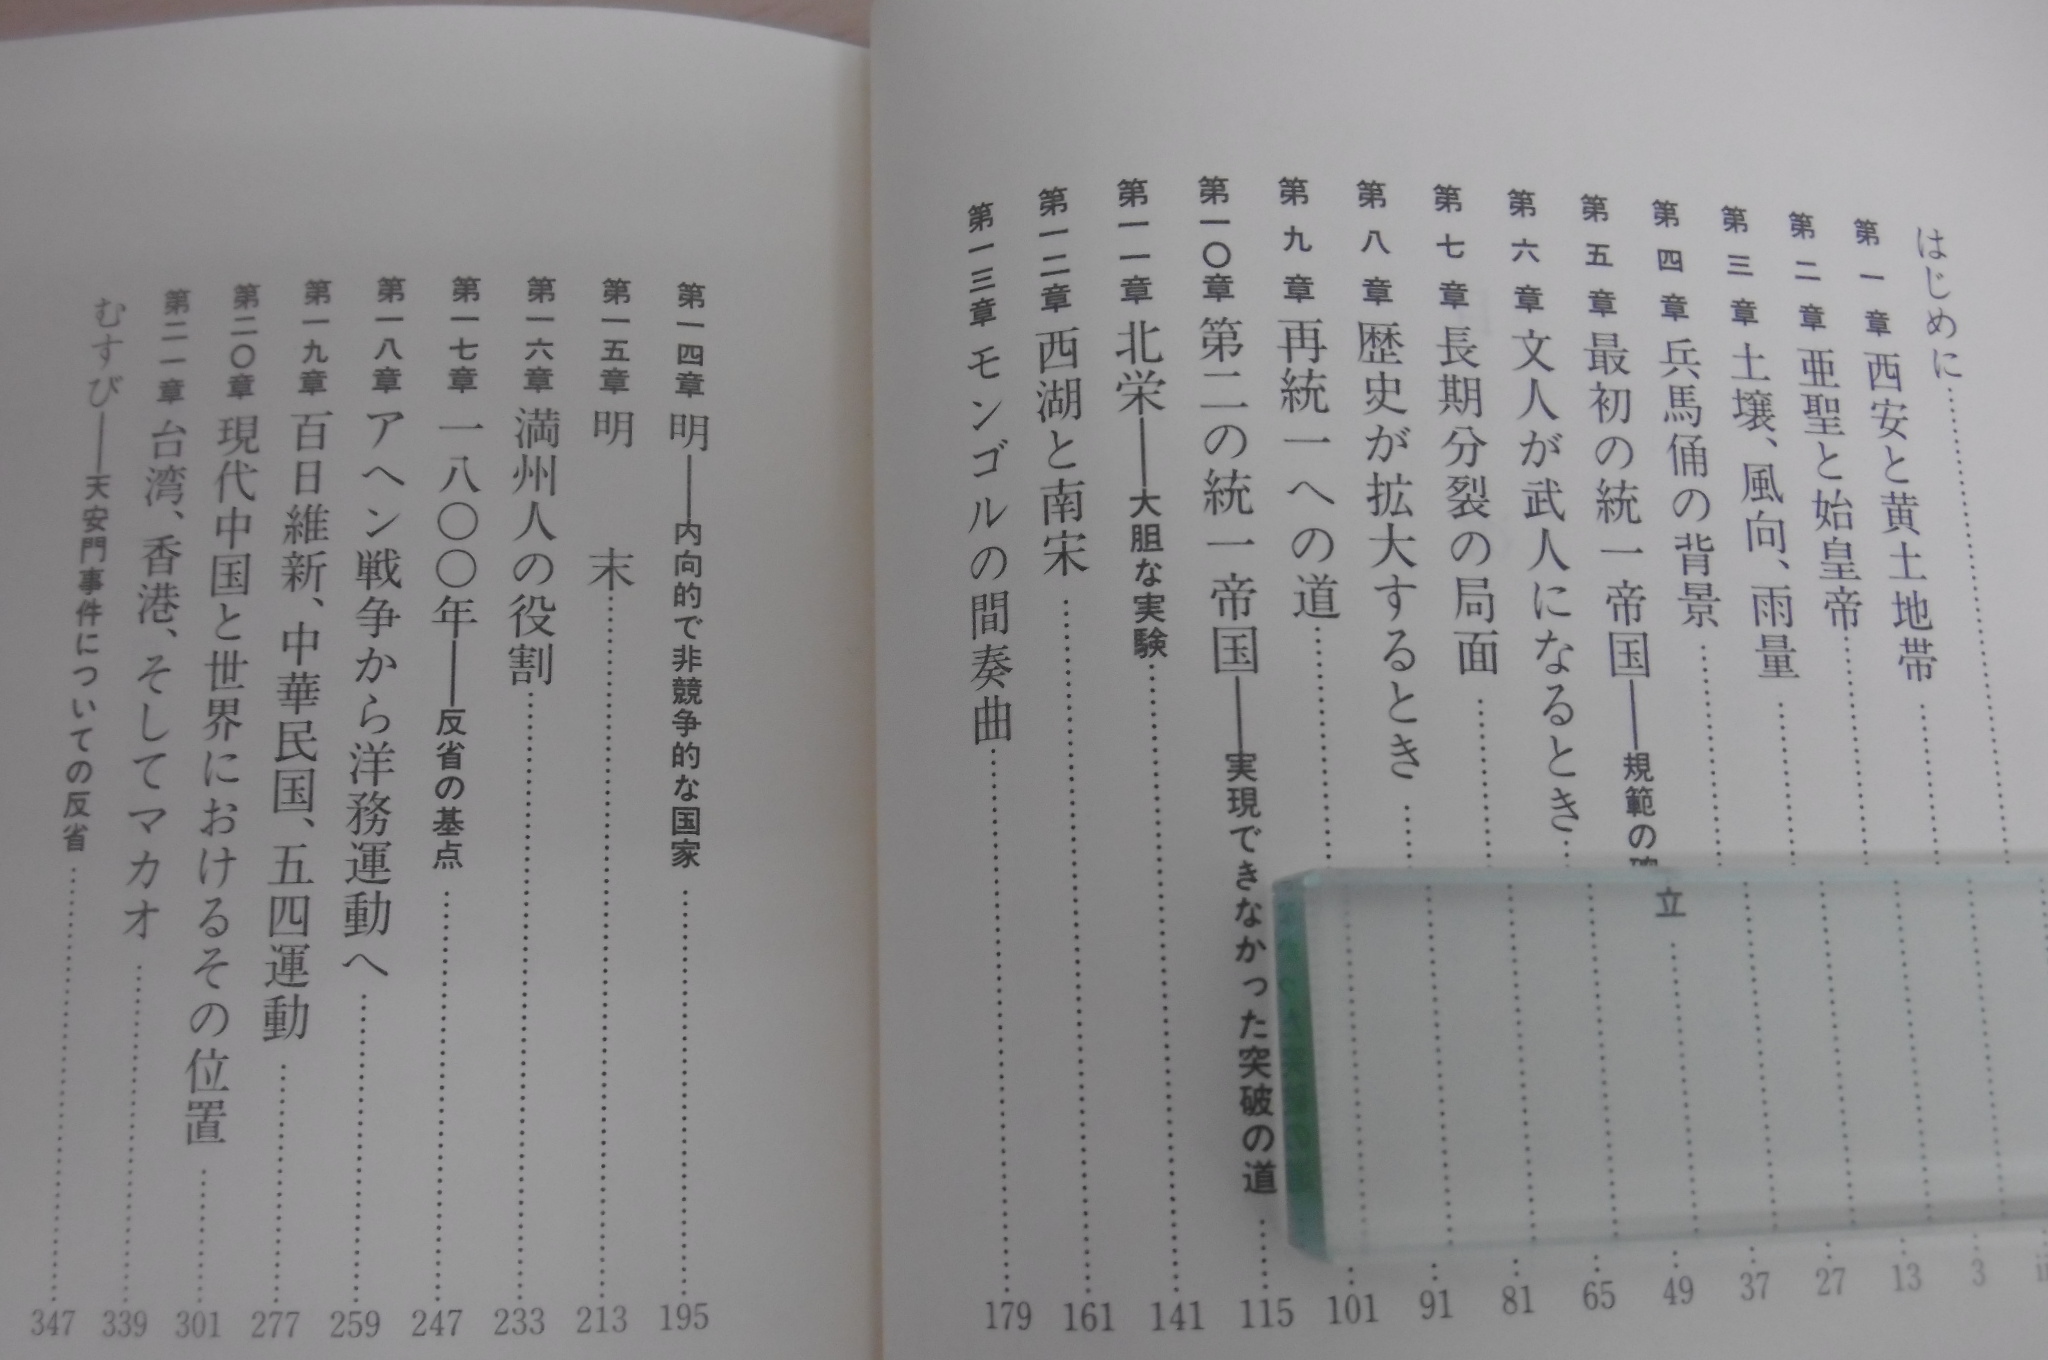 はじめに……
第一章 西安と黄土地帯……3
第二章 亜聖と始皇帝……13
第三章 土壌、風向、雨量……27
第四章 兵馬俑の背景……37
第五章 最初の統一帝国――規範の確立……49
第六章 文人が武人になるとき……65
第七章 長期分裂の局面……81
第八章 歴史が拡大するとき……91
第九章 再統一への道……101
第一〇章 第二の統一帝国――実現できなかった突破の道……115
第一一章 北栄――大胆な実験……141
第一二章 西湖と南宋……161
第一三章 モンゴルの間奏曲……179
第一四章 明――内向的で非競争的な国家……195
第一五章 明 末……213
第一六章 満州人の役割……233
第一七章 一八〇〇年――反省の基点……247
第一八章 アヘン戦争から洋務運動へ……259
第一九章 百日維新、中華民国、五四運動……277
第二〇章 現代中国と世界におけるその位置……301
第二一章 台湾、香港、そしてマカオ……339
むすび――天安門事件についての反省……347